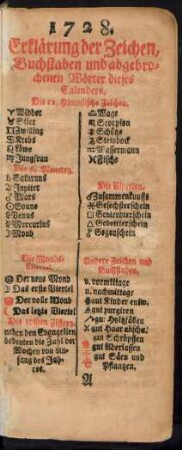 1728.
Erklärung der Zeichen,
Buchstaben und abgebro-
chenen Wörter dieses
Calenders.
Die 12. Himmlische Zeichen.
♈ Widder
♉ Stier
♊ Zwilling
♋ Krebs
♌ Löwe
♍ Jungfrau
♎ Waag
♏ Scorpion
♐ Schütz
♑ Steinbock
♒ Wassermann
♓ Fisch
♄ Saturnus
♃ Jupiter
♂ Mars
☉ Sonne
♀ Venus
☿ Mercurius
☽ Mond
Die Aspecten.
☌ Zusammenkunfft
⚹ Gesechsterschein
□ Gevierdterschein
△ Gedritterschein
☍ Gegenschein
Die Monds-
Der neue Mond
Das erste Viertel
Der volle Mond
Das letzte Viertel
Die rothen Ziffern
neben den Evangelien,
bedeuten die Zahl der
Wochen von An-
fang des Jah-
res.
Andere Zeichen und
Buchstaben.
v. vormittage
n. nachmittage
gut Kinder entw.
gut purgiren
gut Holtzfällen
gut Haar abschn.
gut Schröpffen
gut Aderlassen
gut Säen und
Pflantzen.
A